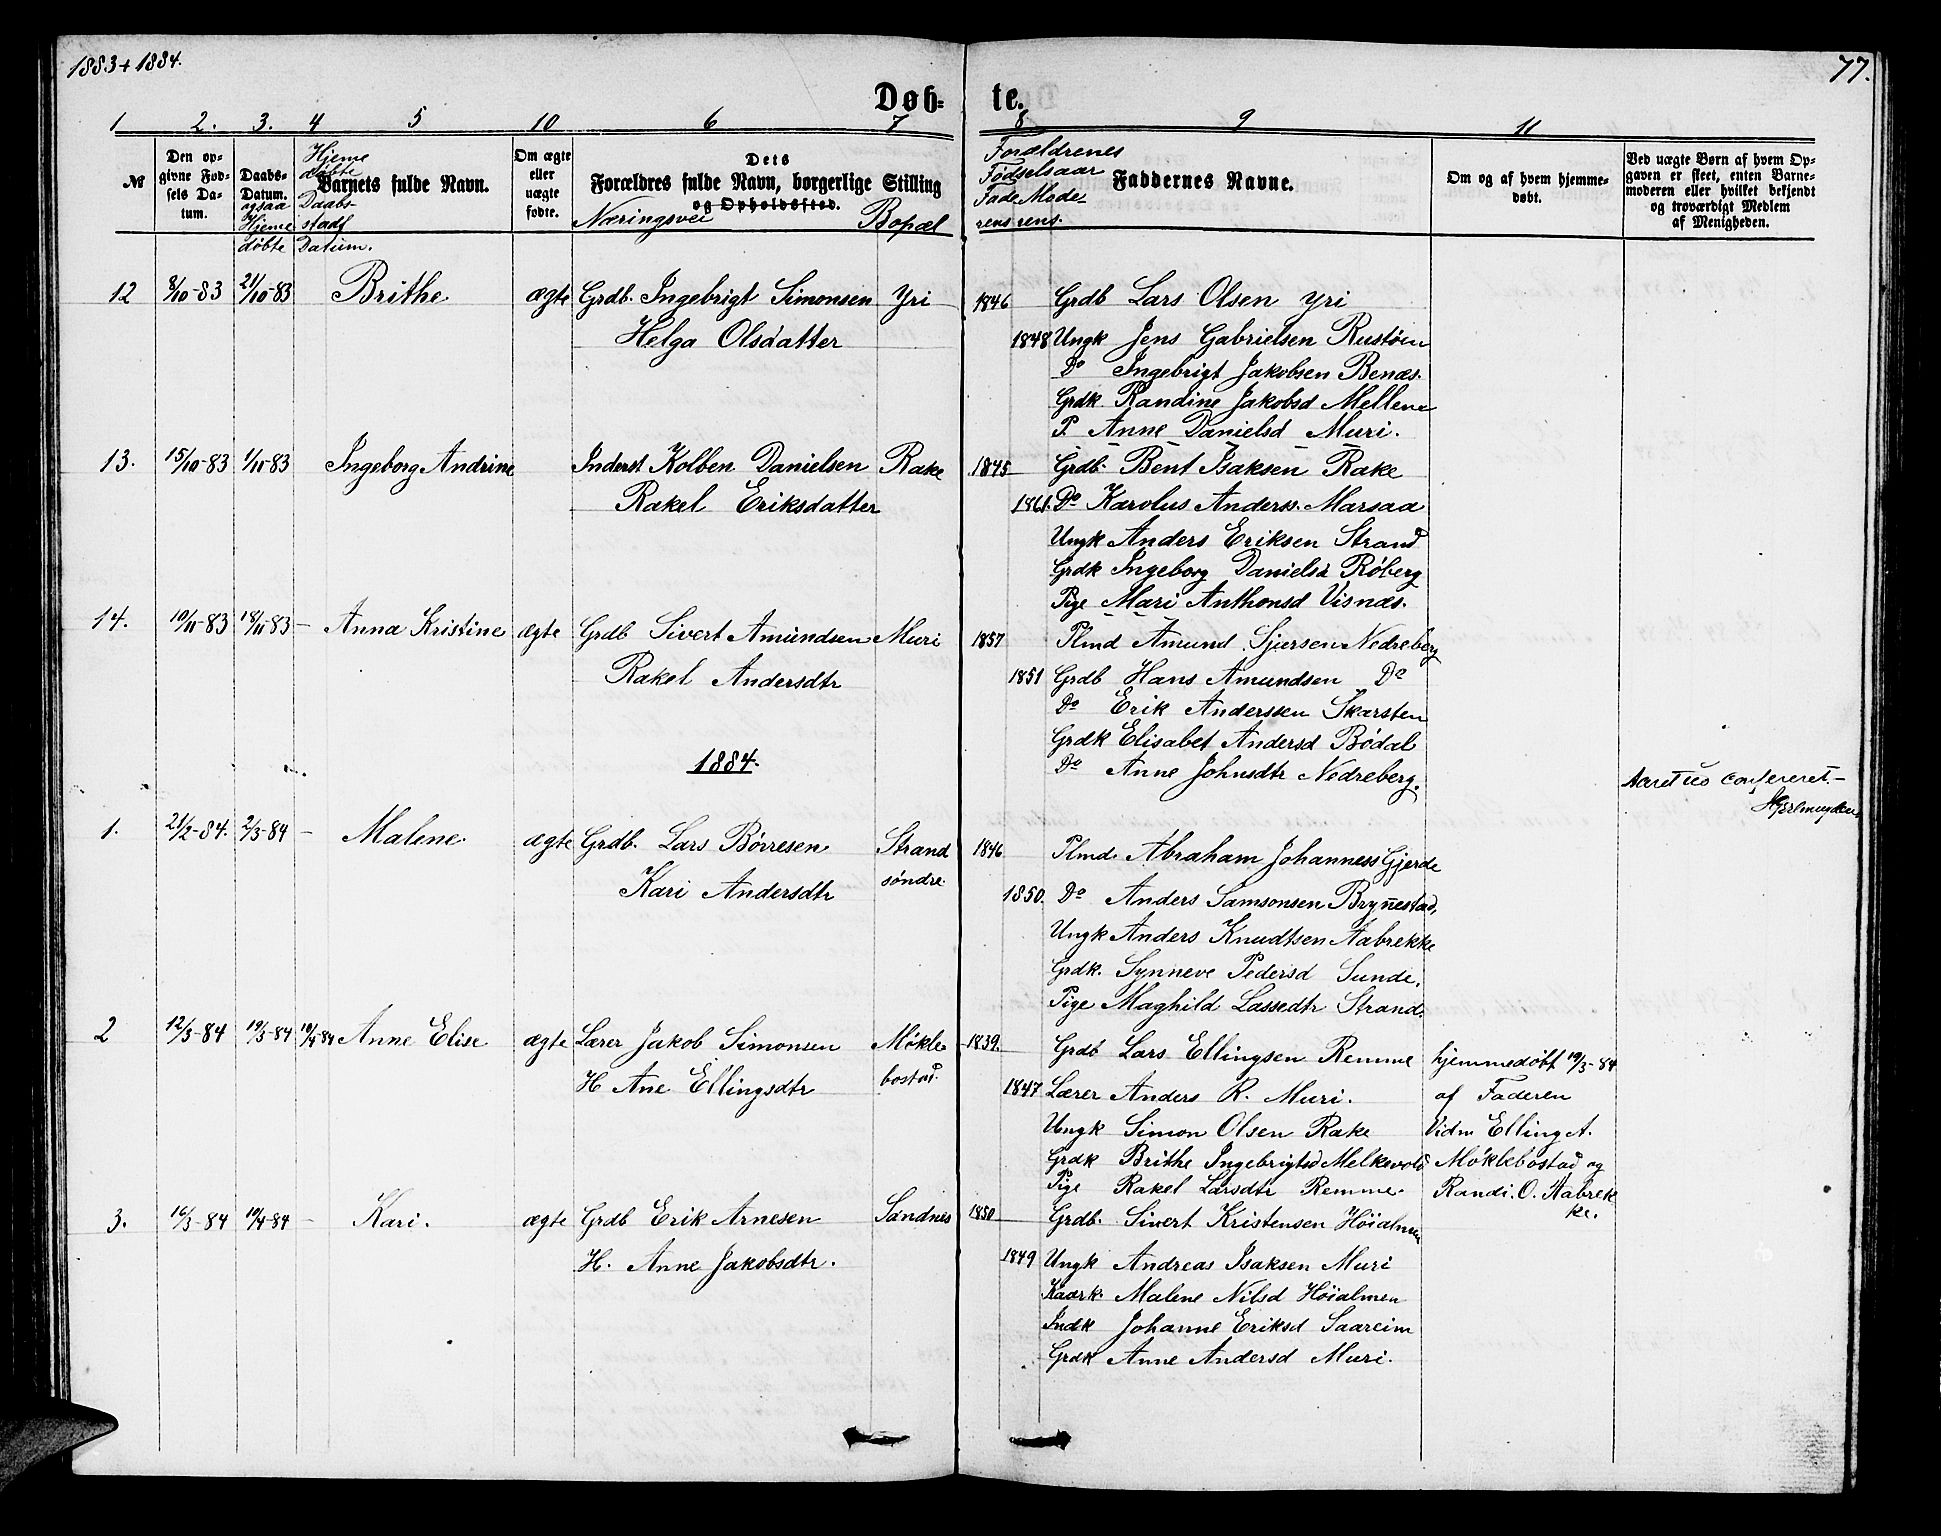 1883 + 1884.
77.
Døb-
te.
1 2. 3. 4 5 10 6 7 8 9 11
№
Den op-
givne Fød-
sels Da-
tum.
Daabs-
Datum.
ogsaa
Hjeme
døbte
Hjeme
døbte
Daabs-
stad
Datum.
Barnets fulde Navn.
Om ægte
eller
uægte
fødte.
Dets
Forældres fulde Navn, borgerlige Stilling
og Opholdssted.
Næringsvei Bopæl
Forældrenes
Fødselsaar
Fade Mode-
rens rens.
Faddernes Navne.
Om og af hvem hjemme-
døbt.
Ved uægte Børn af hvem Op-
gaven er skeet, enten Barne-
moderen eller hvilket bekjendt
og troværdigt Medlem
af Menigheden.
12 8/10-83 21/10-83 Brithe ægte Grdb. Ingebrigt Simonsen Yri 1846 Grdb Lars Olsen Yri
Helga Olsdatter 1848 Ungk Jens Gabrielsen Rustøen
Do Ingebrigt Jakobsen Benæs.
Grdk. Randine Jakobsd Mellene
P. Anne Danielsd Muri.
13. 15/10-83 1/11-83 Ingeborg Andrine Inderst Kolben Danielsen Rake 1845 Grdb. Bent Isaksen Rake
Rakel Eriksdatter 1861. Do Karolus Anderss. Marsaa
Ungk Anders Eriksen Strand
Grdk Ingeborg Danielsd Røberg
Pige Mari Anthonsd Visnæs.
14. 10/11-83 18/11-83 - Anna Kristine ægte Grdb Sivert Amundsen Muri 1857 Plmd Amund Sjursen Nedreberg
Rakel Andersdtr 1851 Grdb Hans Amundsen Do
Do Erik Anderssen Skarsten
Grdk Elisabet Andersd Bødal
Do Anne Johnsdtr Nedreberg.
1884.
Aaret ud confereret.-
1. 21/2-84. 2/3-84 - Malene. ægte Grdb. Lars Børresen Strand 1846 Plmd. Abraham Johanness Gjerde
søndre
Kari Andersdtr 1850. Do Anders Samsonsen Brynestad,
Ungk Anders Knudtsen Aabrekke
Grdk. Synneve Pedersd Sunde.
Pige Maghild Lassedtr Strand.
2 12/3-84 19/3-84 19/4-84 Anne Elise ægte Lærer Jakob Simonsen Møkle- 1839. Grdb Lars Ellingsen Remme hjemmedøbt 19/3-84
H Ane Ellingsdtr bostad. 1847 Lærer Anders R. Muri. af Faderen
Ungk Simon Olsen Rake Vidn Elling A.
Grdk Brithe Ingebrigtsd Melkevold Møklebostad og
Pige Rakel Larsdtr Remme. Randi. O. Aabrek
ke.
3. 16/3-84 19/4-84 - Kari. ægte Grdb Erik Arnesen Sandnes 1850 Grdb. Sivert Kristensen Høialmen
H. Anne Jakobsdtr. 1849 Ungk Andreas Isaksen Muri
Kaark. Malene Nilsd Høialmen
Indk Johanne Eriksd Saareim
Grdk Anne Andersd Muri.